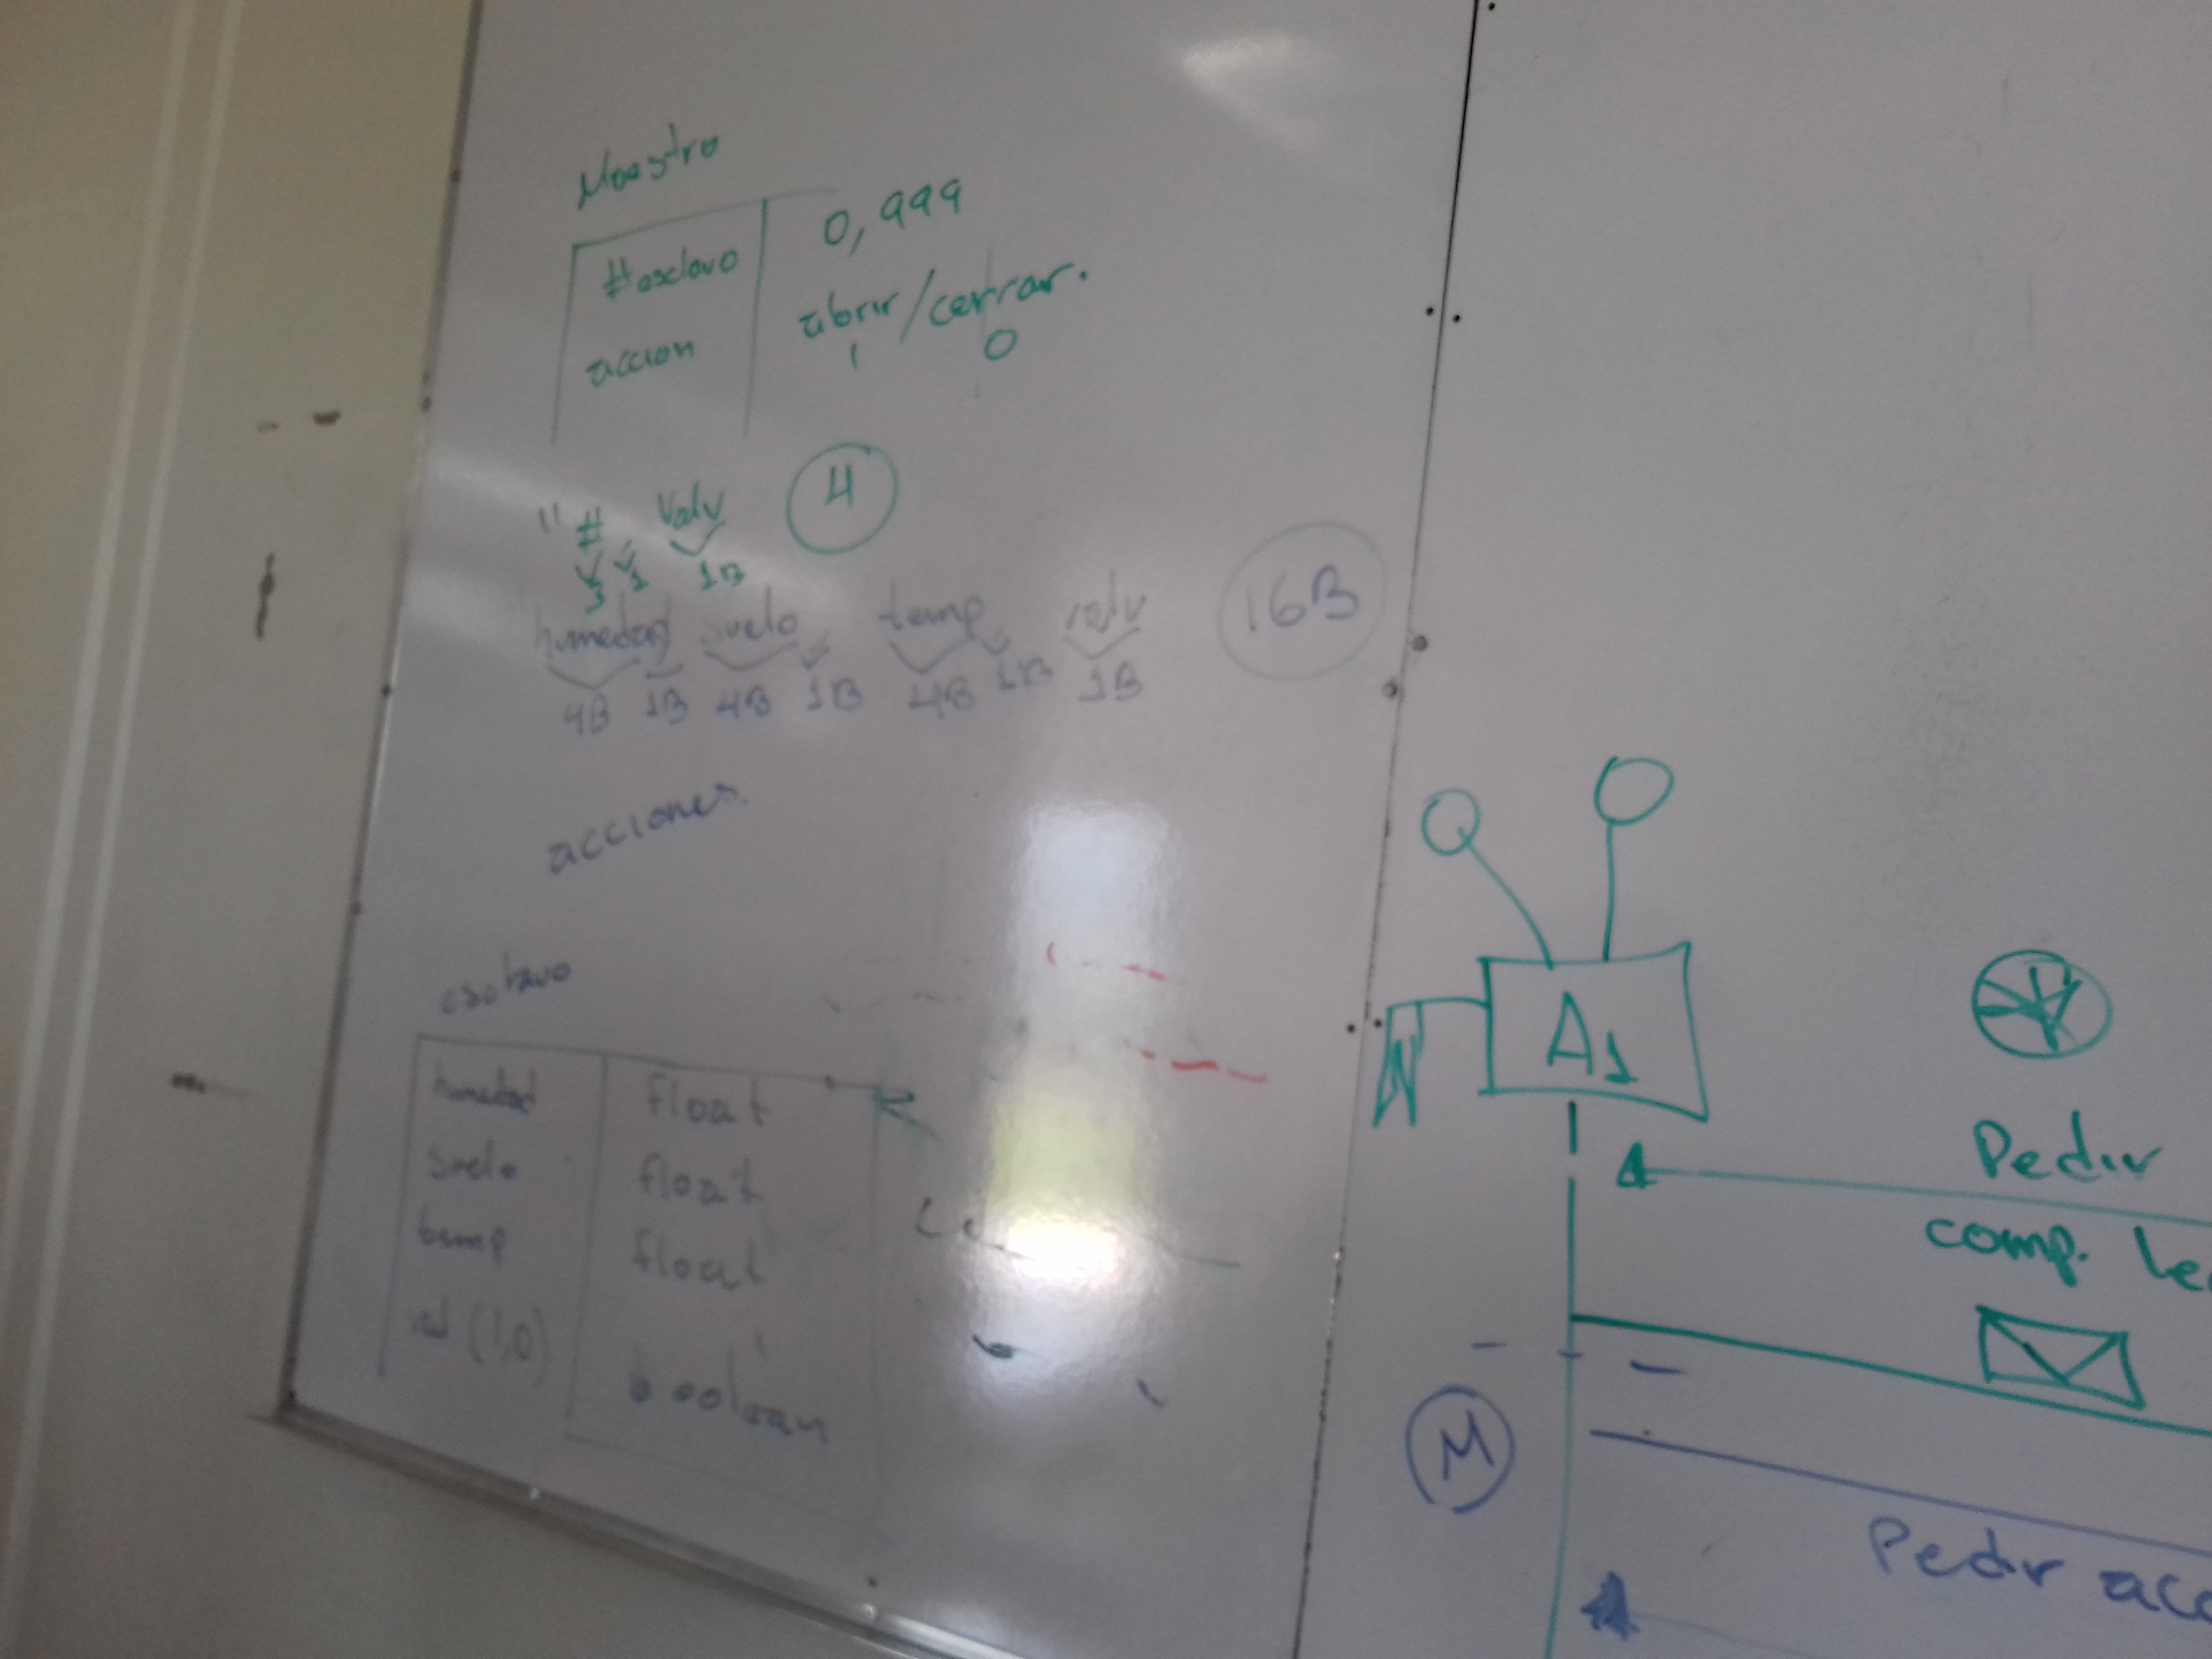 Maestro
#esclavo 0,999
accion abrir/cerrar.
1 0
" # , Valv 4
3 1 1B
humedad suelo temp valv 16B
4B 1B 4B 1B 4B 1B 1B
acciones
esclavo
humedad float
suelo float
temp float
val (1,0) boolean
A1
Pedir
comp.
M
Pedir